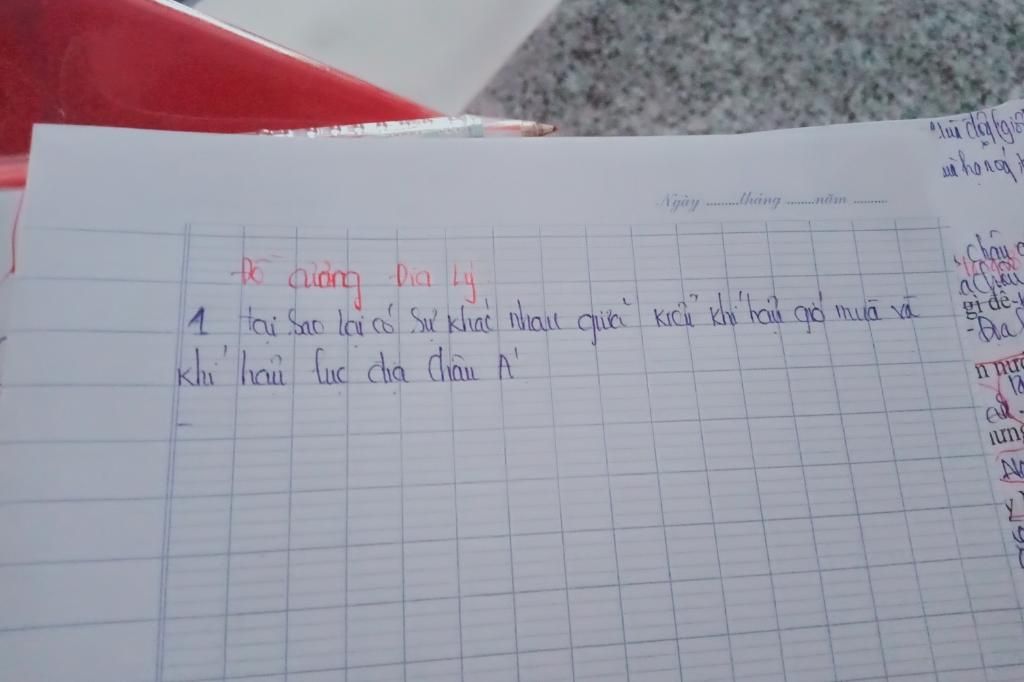 Ngày ........tháng .......năm .........
Đề cương Địa Lý
1 tại sao lại có sự khác nhau giữa kiểu khí hậu gió mùa và
khí hậu lục địa châu Á
-
châu
gì dê
-Địa